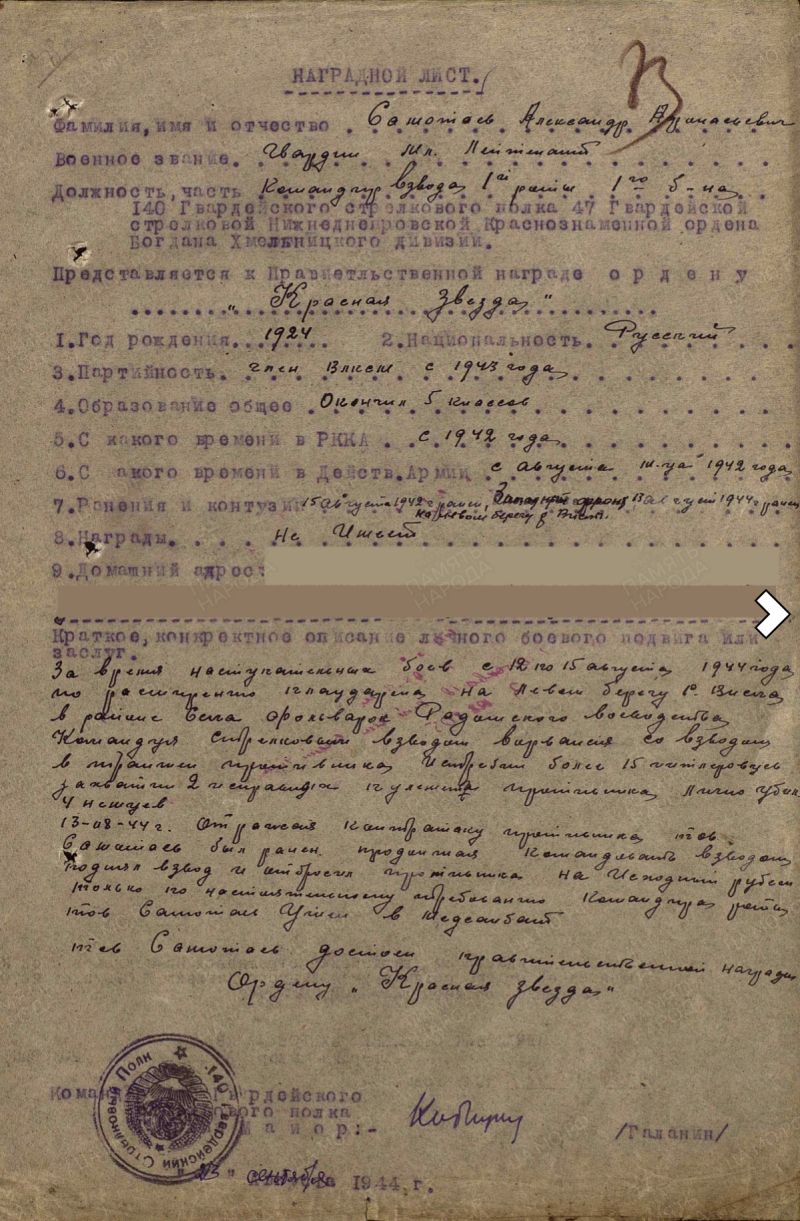 НАГРАДНОЙ ЛИСТ.
Фамилия, имя и отчество . Самотаев Александр Афанасьевич
Военное звание. Гвардии Мл. Лейтенант
Должность, часть Командир взвода 1й роты 1го б-на
140 Гвардейского стрелкового полка 47 Гвардейской
стрелковой Нижнеднепровской Краснознаменной ордена
Богдана Хмельницкого дивизии.
Представляется к Правиетльственной награде ордену
"Красная Звезда"
1. Год рождения. 1924 2. Национальность. Русский
3. Партийность. член ВЛКСМ с 1943 года
4. Образование общее Окончил 5 классов
5. С какого времени в РККА . с 1942 года
6. С какого времени в Действ. Армии с августа м-ца 1942 года
7. Ранения и контузии 15 августа 1942 г ранен, Западный фронт 13 август 1944 г ранен
на левом берегу р Висла.
8. Награды. Не Имеет
9. Домашний адрес:
Краткое, конкретное описание личного боевого подвига или
заслуг.
За время наступательных боев с 12 по 15 августа 1944 года
по расширению плацдарма на Левом берегу р. Висла
в районе Села Фольварок Радомского воеводства
Командуя стрелковым взводом ворвался со взводом
в траншеи противника Истребил более 15 гитлеровцев
захватил 2 исправных пулемета противника Лично убил
4 немцев
13-08-44 г. Отражая контратаку противника тов.
Самотаев был ранен. продолжая командовать взводом
поднял взвод и отбросил противника на Исходный рубеж
только по настоятельному требованию командира роты
тов Самотаев Ушел в медсанбат
тов Самотаев достоин правительственной награды
Ордену "Красная звезда"
Гвардейского
полка
Майор:- /Галанин/
сентября 1944 г.
140 Гвардейский Стрелковый Полк